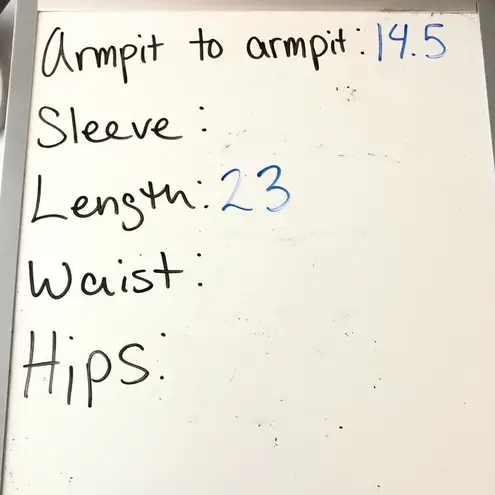 Armpit to armpit: 14.5
Sleeve:
Length: 23
Waist:
Hips: